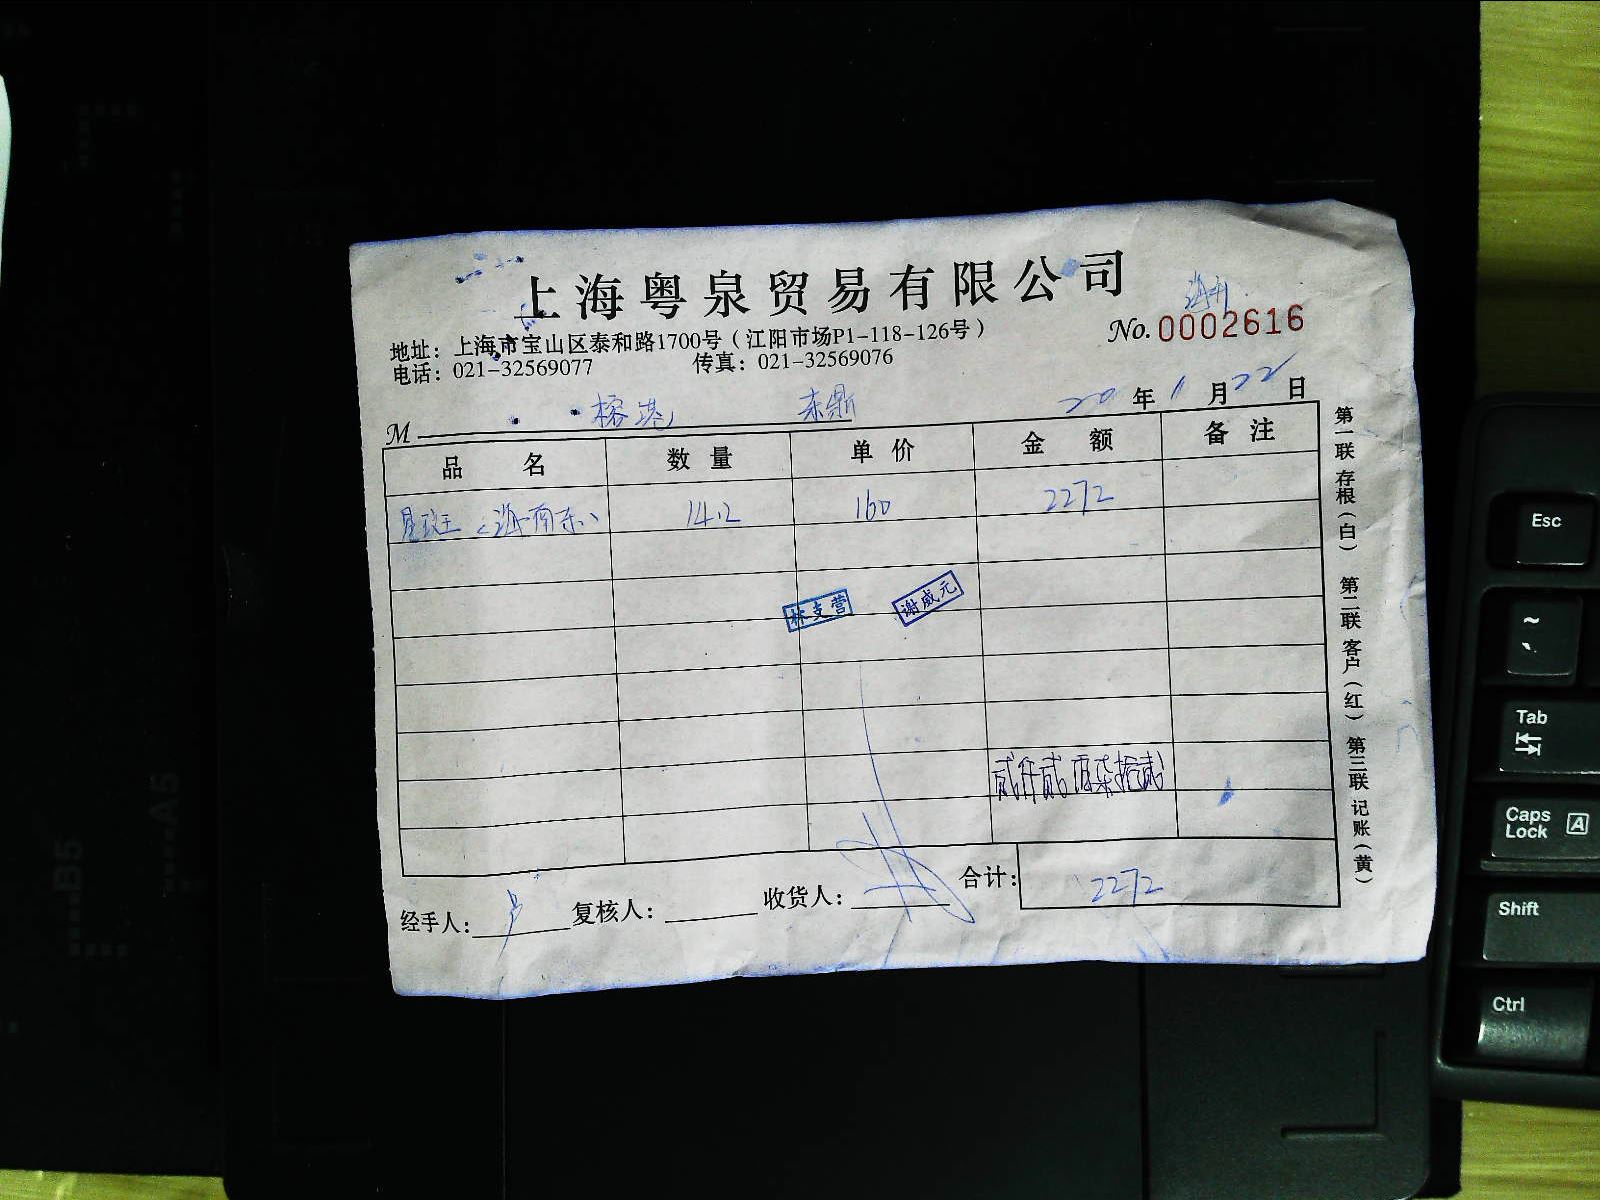 上海粤泉贸易有限公司
No. 0002616
地址：上海市宝山区泰和路1700号（江阳市场P1-118-126号）
电话：021-32569077 传真：021-32569076
20 年 1 月 22 日
M 榕港 东鼎
品名 数量 单价 金额 备注
星斑（海南东） 14.2 160 2272
林支营 谢威元
贰仟贰佰柒拾贰
合计： 2272
经手人： 复核人： 收货人：
第一联 存根（白） 第二联 客户（红） 第三联 记账（黄）
B5
A5
Esc
~
Tab
Caps Lock A
Shift
Ctrl